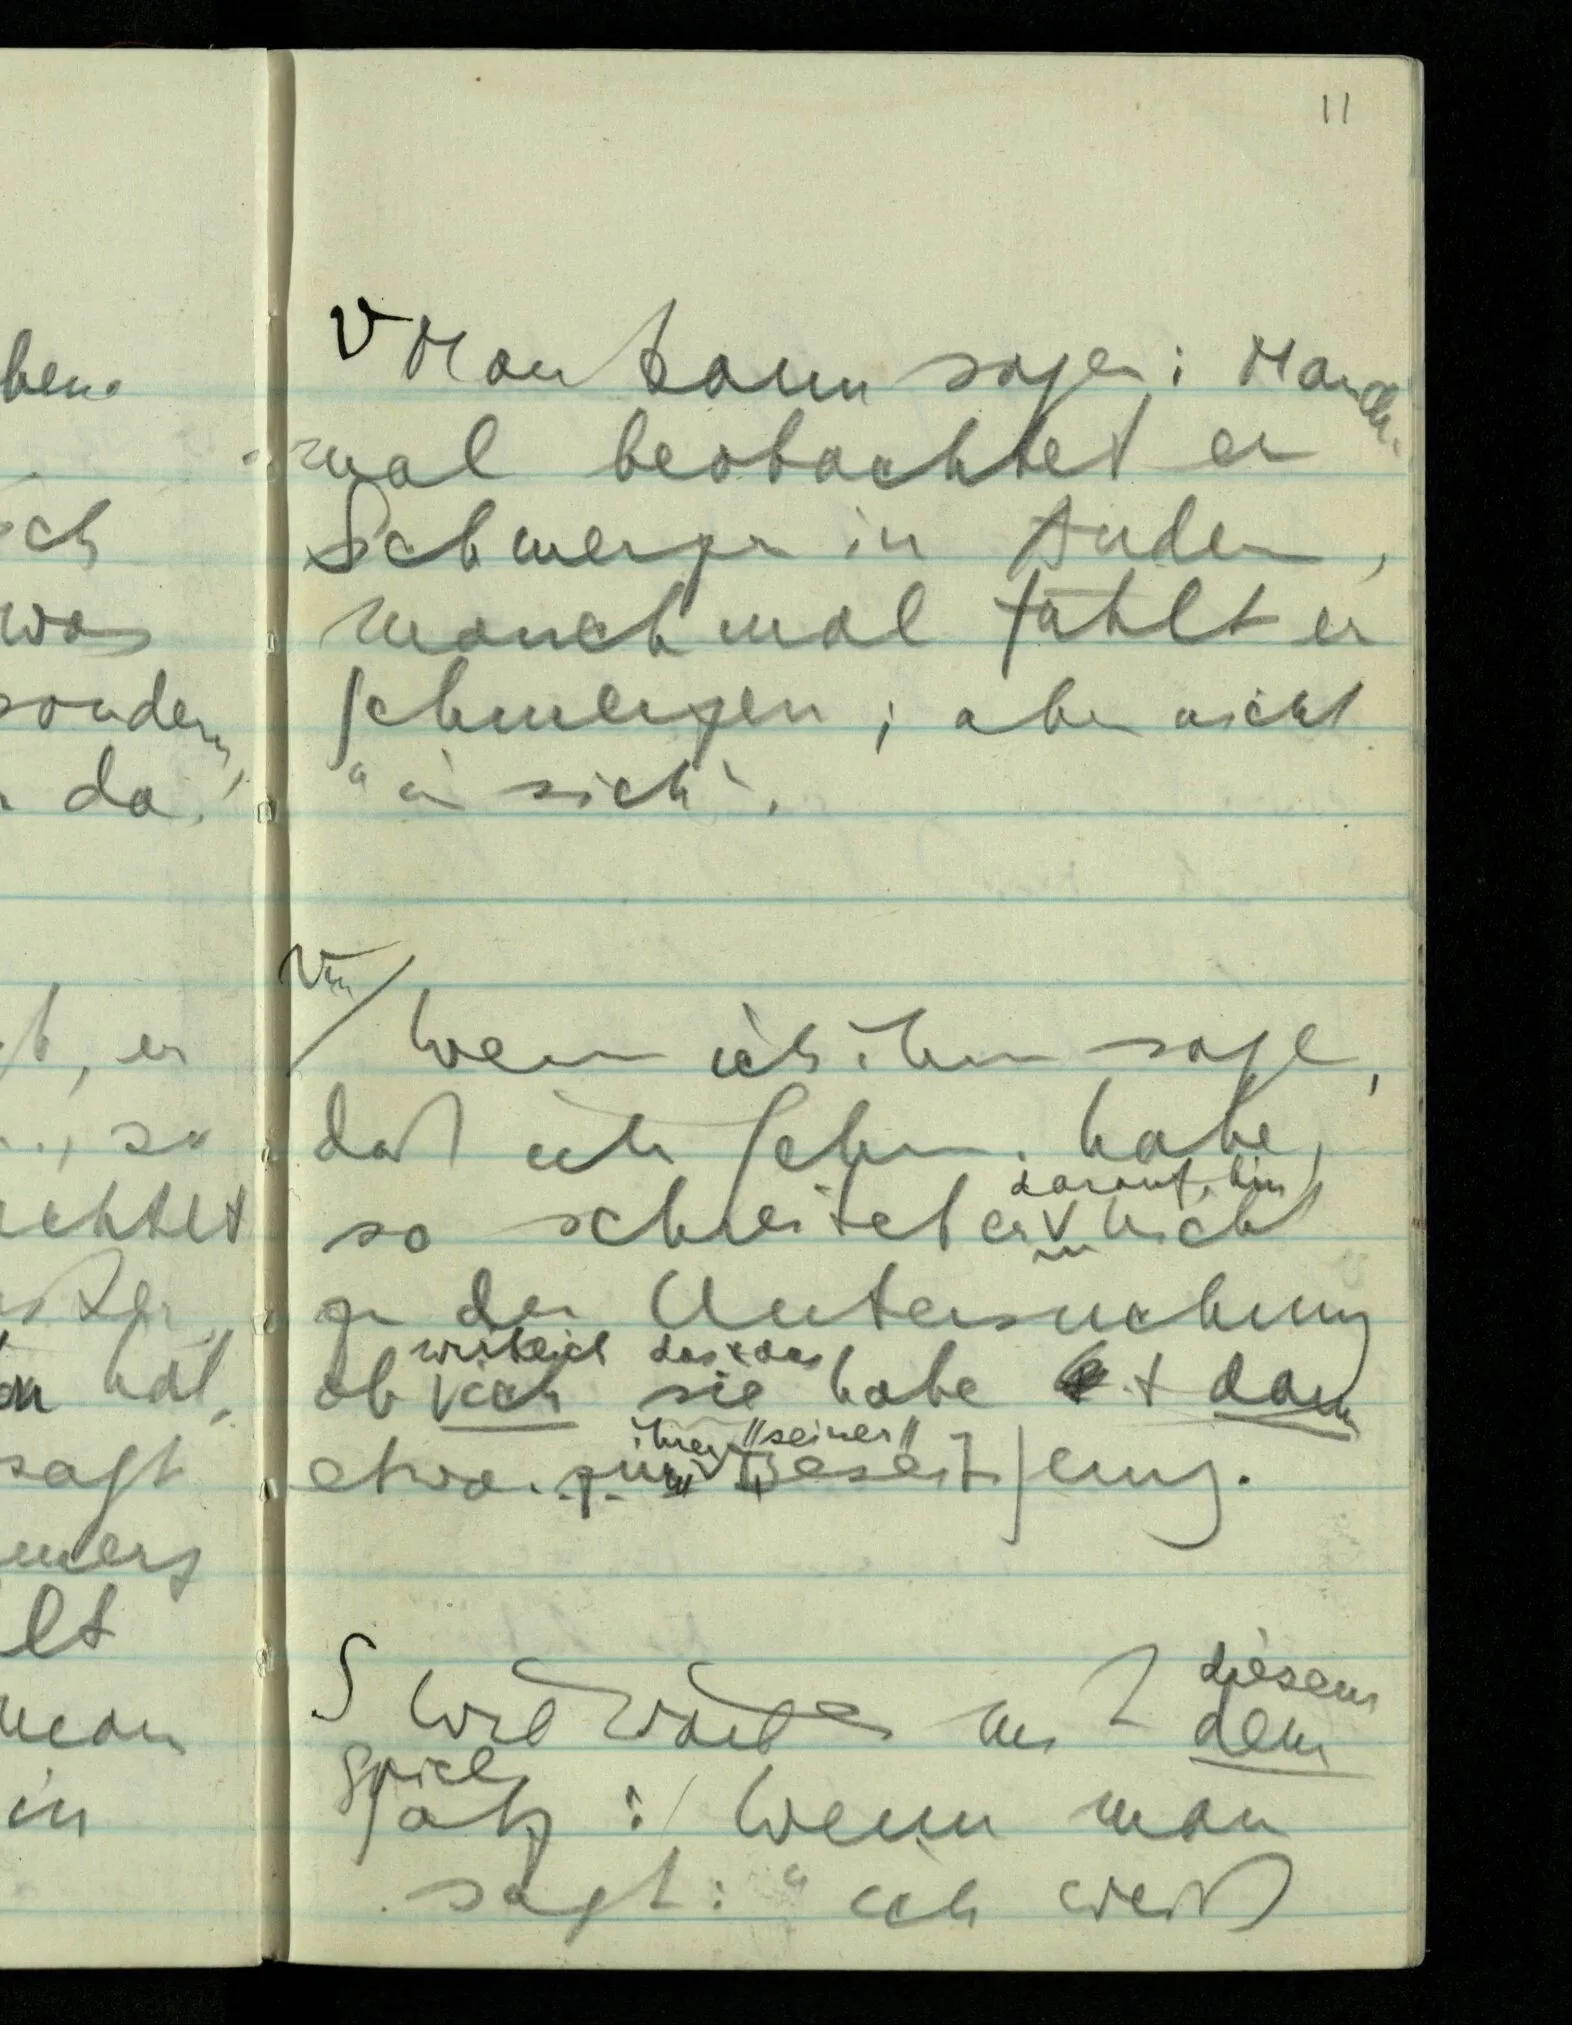 ben.
sch
was
sondern,
da.
, er
..., so
achtet
hat,
sagt
mers
lt
man
in
11
V Man kann sagen: Manch-
mal beobachtet er
Schmerzen in Andern,
manchmal fühlt er
Schmerzen; aber nicht
"in sich".
Wenn ich ihm sage,
daß ich Schm. habe,
darauf hin
so schreitet er V nicht
zu der Untersuchung
wirklich das & das
ob V ich sie habe & dann
ihrer "seiner"
etwa zur V Beseitigung.
diesem
S Wie wäre es mit dem
Spiel
Satz: / Wenn man
sagt: "ich weiß